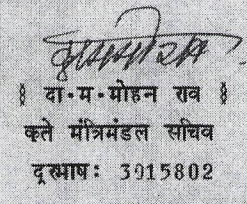 § दा॰म॰मोहन राव §
कृते मंत्रिमंडल सचिव
दूरभाष: 3015802